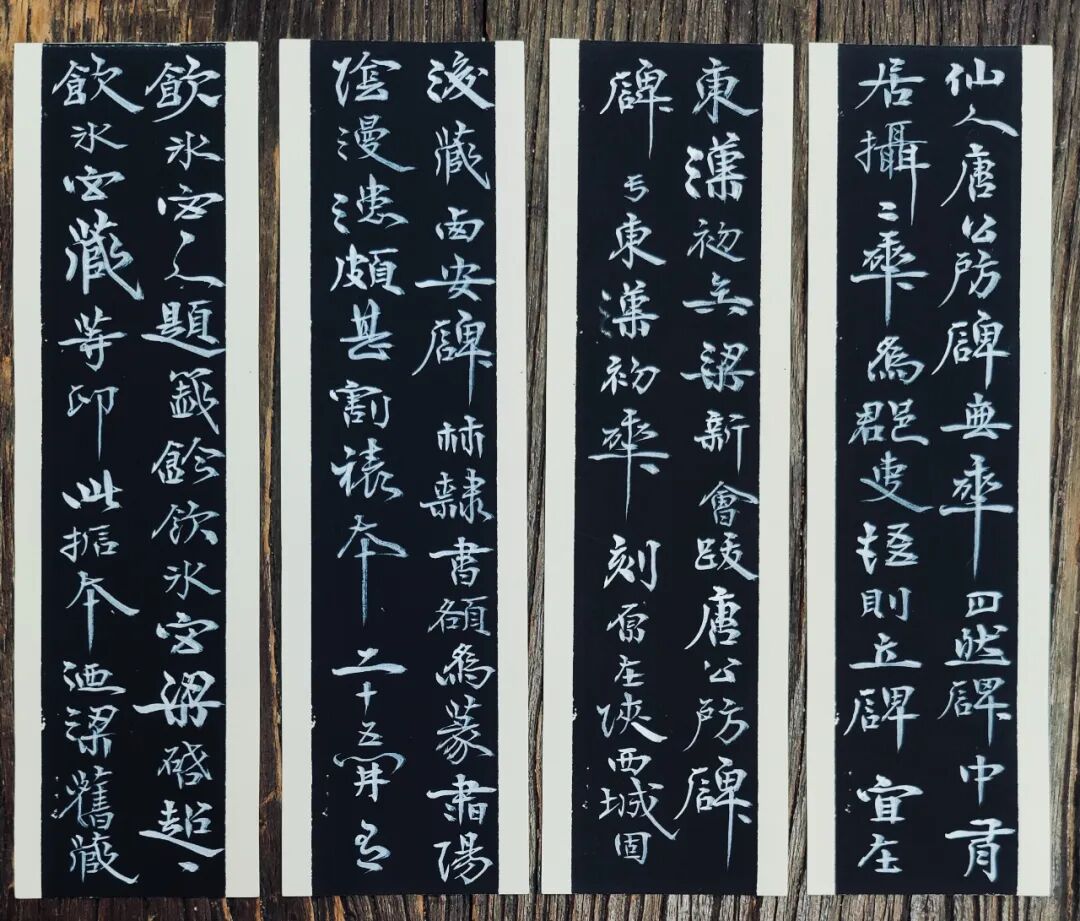 仙人唐公防碑無年月然碑中有
居攝二年為郡吏語則立碑宜在
東漢初矣梁新會跋唐公防碑
碑于東漢初年刻原在陝西城固
後藏西安碑林隸書額為篆書陽
陰漫漶頗甚割裱本二十五開有
飲冰室人題籤鈐飲冰室梁啟超、
飲冰室藏等印此拓本迺梁舊藏